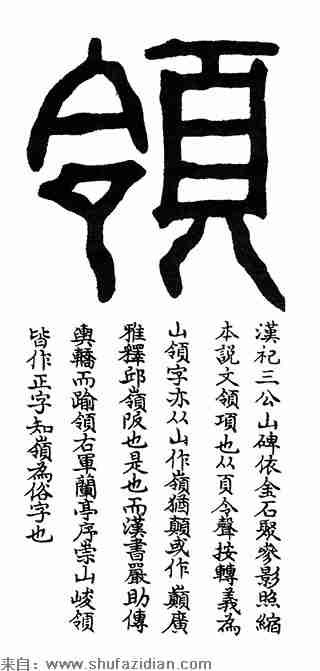 領
漢祀三公山碑依金石聚雙影照縮
本説文領項也从頁令聲按轉義為
山領字亦从山作嶺猶顛或作巓廣
雅釋邱嶺阪也是也而漢書嚴助傳
輿轎而踰領右軍蘭亭序崇山峻領
皆作正字知嶺為俗字也
来自：www.shufazidian.com